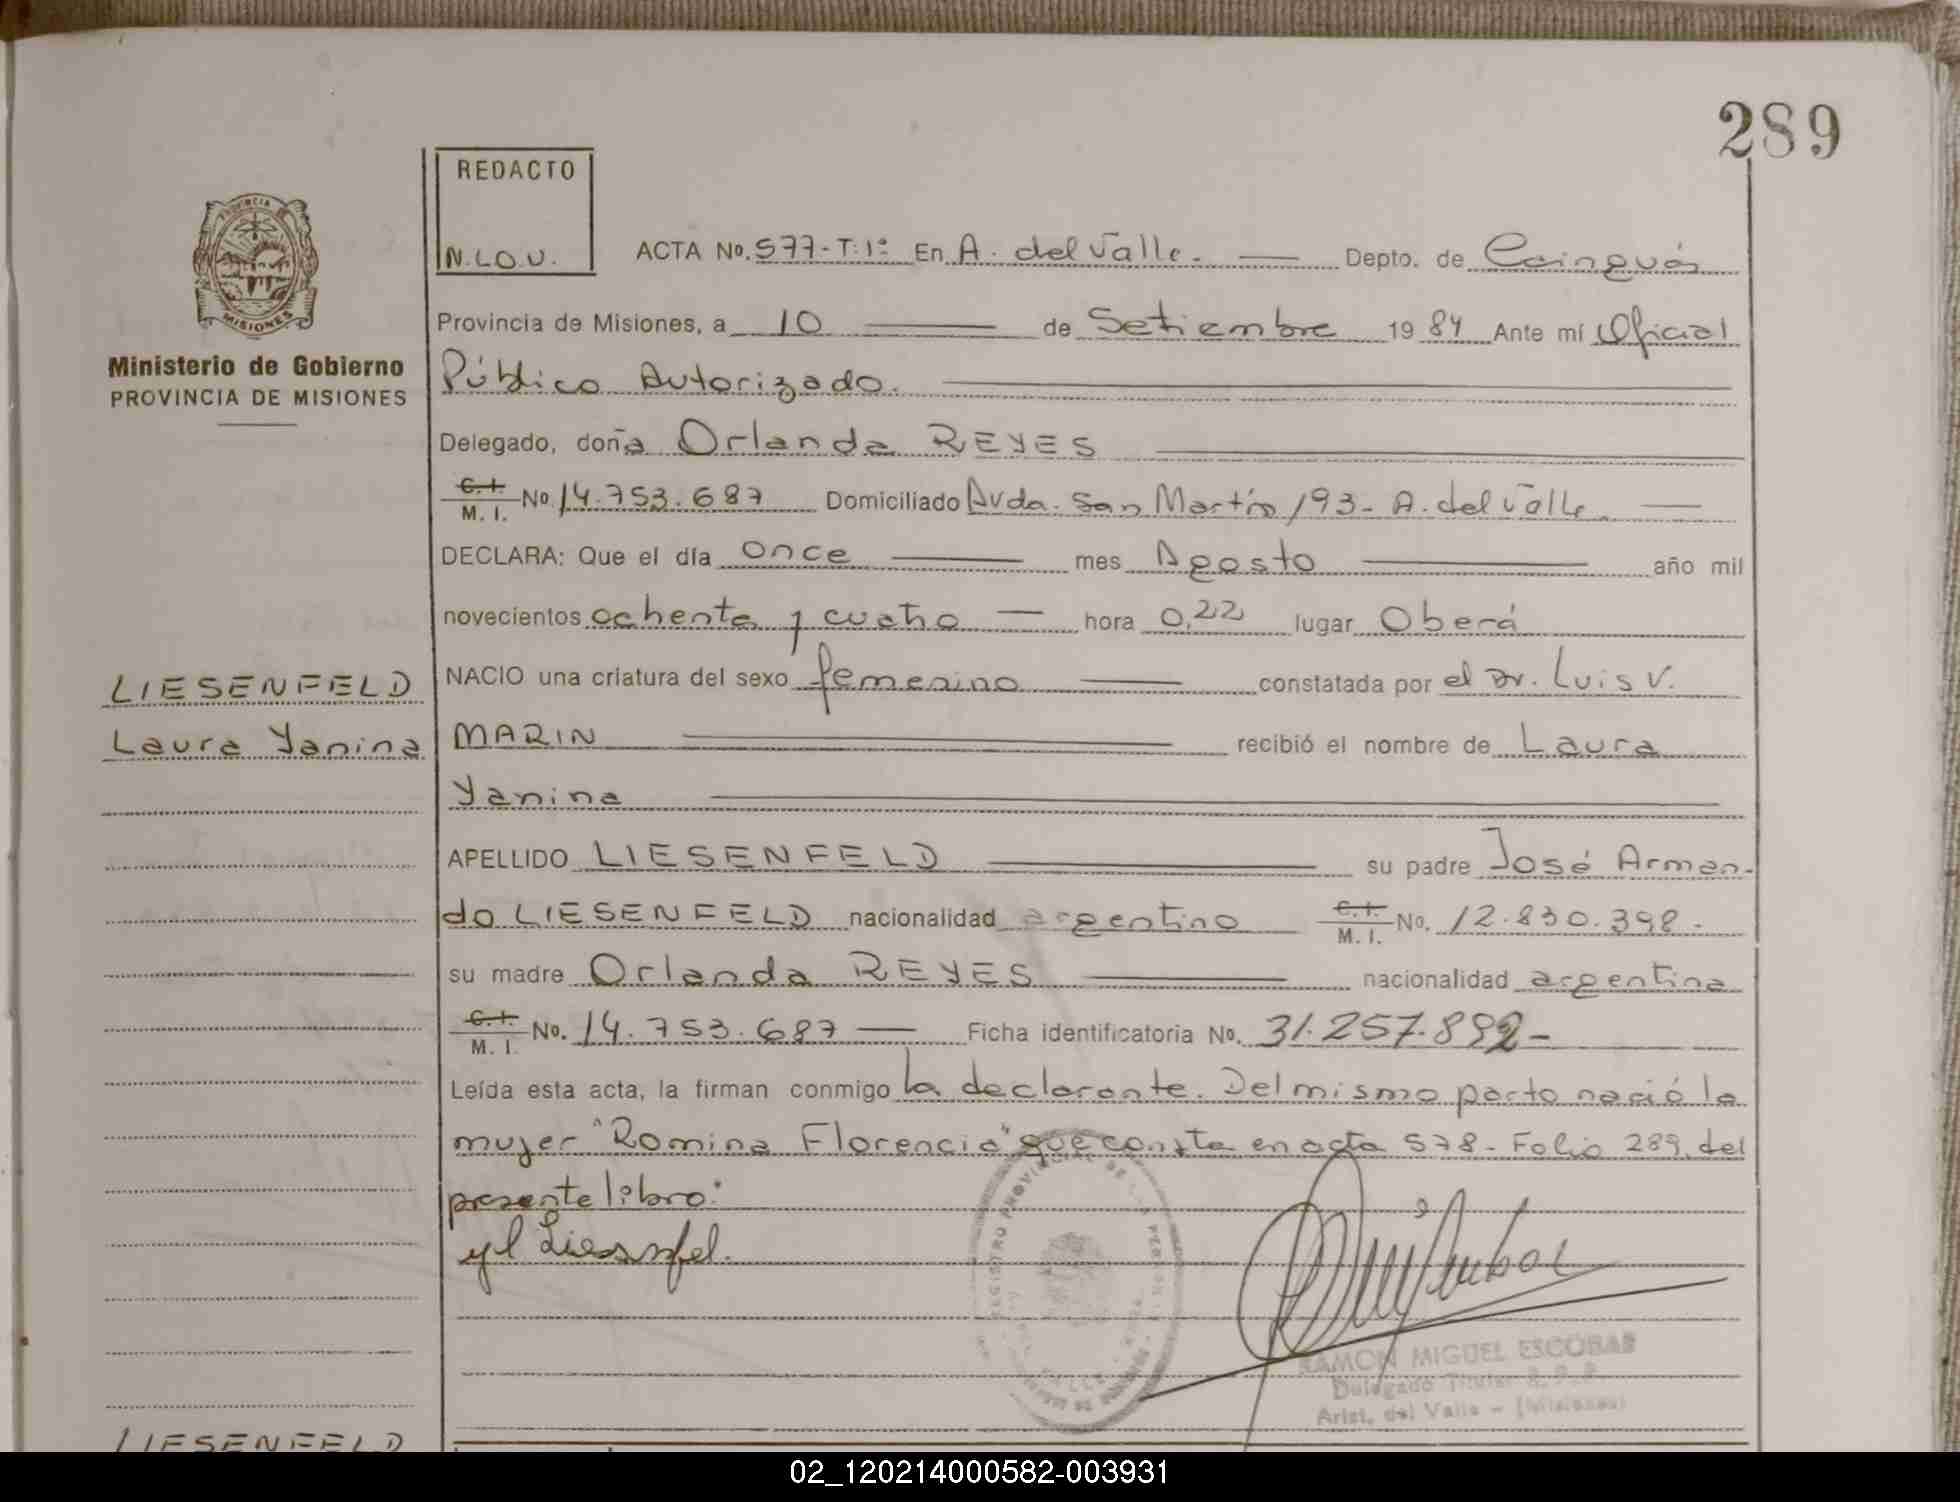 289
REDACTO
N.LO.U.
ACTA No. 577-T:1º En A. del Valle. Depto. de Cainguás
PROVINCIA DE MISIONES
Provincia de Misiones, a 10 de Setiembre 1984 Ante mí Oficial
Ministerio de Gobierno
PROVINCIA DE MISIONES
Público Autorizado.
Delegado, doña Orlanda REYES
C.I. M.I. No. 14.753.687 Domiciliado Avda. San Martín 193- A. del Valle.
DECLARA: Que el día once mes Agosto año mil
novecientos ochenta y cuatro hora 0,22 lugar Oberá
NACIO una criatura del sexo femenino constatada por el Dr. Luis V.
LIESENFELD
Laura Yanina
MARIN recibió el nombre de Laura
Yanina
APELLIDO LIESENFELD su padre José Arman-
do LIESENFELD nacionalidad argentino C.I. M.I. No. 12.830.398.-
su madre Orlanda REYES nacionalidad argentina
C.I. M.I. No. 14.753.687 Ficha identificatoria No. 31.257.892-
Leída esta acta, la firman conmigo la declarante. Del mismo parto nació la
mujer "Romina Florencia" que consta en acta 578- Folio 289, del
presente libro:
RAMON MIGUEL ESCOBAR
Delegado Titular
Arist. del Valle - (Misiones)
LIESENFELD
02_120214000582-003931